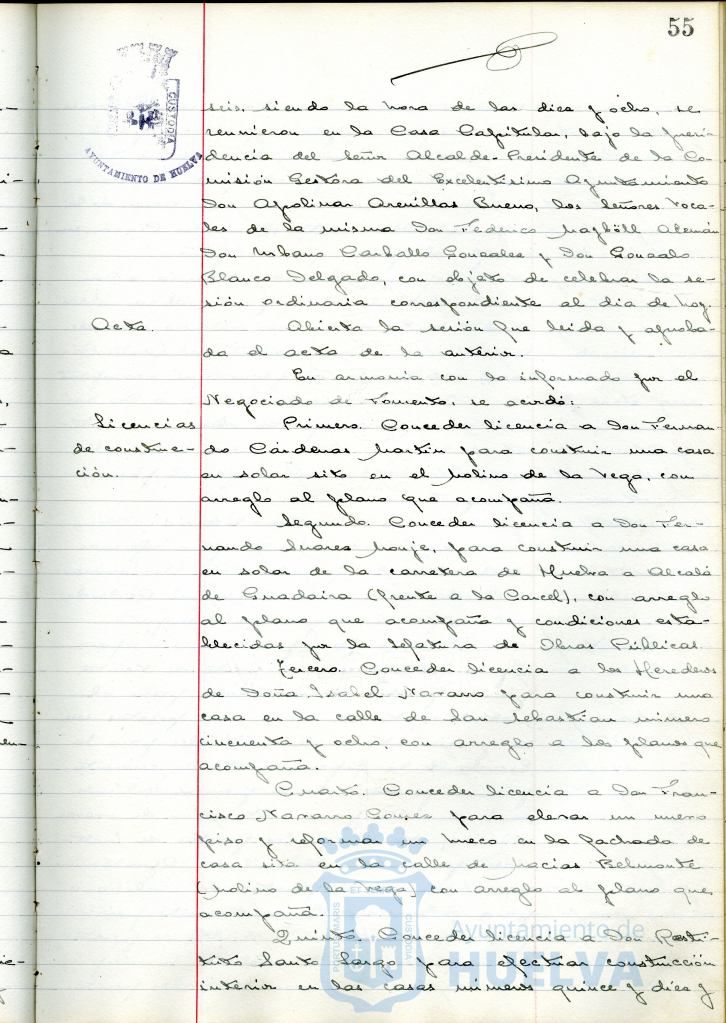 55
CUSTODIA
AYUNTAMIENTO DE HUELVA
seis, siendo la hora de las diez y ocho, se
reunieron en la Casa Capitular, bajo la presi-
dencia del Señor Alcalde-Presidente de la Co-
misión Gestora del Excelentísimo Ayuntamiento
Don Apolinar Arenillas Bueno, los Señores Voca-
les de la misma Don Federico Alemán
Don Urbano Carballo Gonzalez y Don Gonzalo
Blanco Delgado, con objeto de celebrar la se-
sión ordinaria correspondiente al dia de hoy.
Acta.
Abierta la sesión fue leida y aproba-
da el acta de la anterior.
En armonia con lo informado por el
Negociado de Fomento, se acordó:
Licencias
de construc-
ción.
Primero. Conceder licencia a Don Fernan-
do Cárdenas Martín para construir una casa
en solar sito en el Molino de la Vega, con
arreglo al plano que acompaña.
Segundo. Conceder licencia a Don Fer-
nando Suarez Monje, para construir una casa
en solar de la carretera de Huelva a Alcalá
de Guadaira (frente a la Carcel), con arreglo
al plano que acompaña y condiciones esta-
blecidas por la Jefatura de Obras Públicas.
Tercero. Conceder licencia a los Herederos
de Doña Isabel Navarro para construir una
casa en la calle de San Sebastian número
cincuenta y ocho, con arreglo a los planos que
acompaña.
Cuarto. Conceder licencia a Don Fran-
cisco Navarro Gomez para elevar un nuevo
piso y reformar un hueco en la fachada de
casa sita en la calle de Macias Belmonte
(Molino de la Vega) con arreglo al plano que
acompaña.
Quinto. Conceder licencia a Don Resti-
tuto Santo Largo para efectuar construcción
interior en las casas números quince y diez y
PORTUS MARIS ET CUSTODIA
Ayuntamiento de
HUELVA